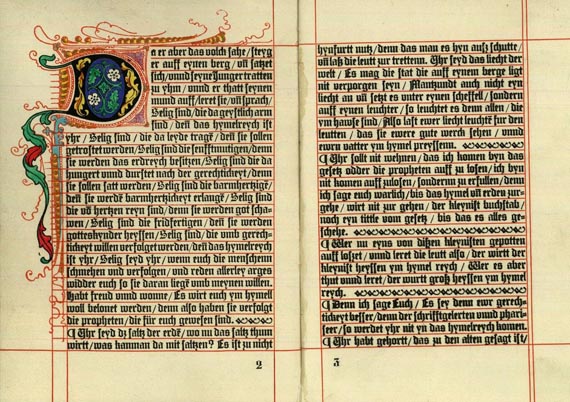 Da er aber das volck sahe/steyg
er auff eynen berg/vn̄ satzet
sich/vnnd seyne Junger tratten
zu yhm/vnnd er thatt seynen
mund auff/leret sie/vn̄ sprach/
Selig sind/die da geystlich arm
sind/deñ das hymelreych ist
yhr/Selig sind/die da leyde tragē/deñ sie sollen
getrostet werden/Selig sind die senfftmutigen/denn
sie werden das erdreych besitzen/Selig sind die da
hungert vnnd durstet nach der gerechtickeyt/denn
sie sollen satt werden/Selig sind die barmhertzigē/
deñ sie werdē barmhertzickeyt erlangē/Selig sind
die vō hertzen reyn sind/denn sie werden got scha-
wen/Selig sind die fridfertigen/deñ sie werden
gottis kynder heyssen/Selig sind/die vmb gerech-
tickeyt willen verfolget werden/deñ das hymelreych
ist yhr/Selig seyd yhr/wenn euch die menschenn
schmehen vnd verfolgen/vnd reden allerley arges
widder euch so sie daran liegē vmb meynen willen.
Habt freud vnnd wonne/Es wirt euch ym hymell
woll belonet werden/denn also haben sie verfolgt
die propheten/die fur euch gewesen sind.
Yhr seyd dz saltz der erdē/wo nu das saltz thum
wirtt/was kann man da mit saltzen? Es ist zu nicht
2
hynfurtt nutz/denn das man es hyn ausz schutte/
vn̄ lasz die leutt zur trettenn. Yhr seyd das liecht der
welt/Es mag die stat die auff eynem berge ligt
nit verporgen seyn/Man tzundt auch nicht eyn
liecht an vn̄ setzt es vnter eynen scheffell/sondern
auff eynen leuchter/so leuchtet es denn allen/die
ym hawse sind/Also last ewer liecht leuchtē fur den
leutten/das sie ewere gute werch sehen/vnnd
ewrn vatter ym hymel preyssenn.
¶ Yhr sollt nit wehnen/das ich komen byn das
gesetz odder die propheten auff zu losen/ich byn
nit komen auff zulosen/sondern zu erfullen/denn
ich sage euch warlich/bis das hymel vn̄ erden zur-
gehe/wirt nit zur gehen/der kleynist buchstab/
noch eyn tittle vom gesetz/bis das es alles ge-
schehe.
¶ Wer nu eyns von diszen kleynisten gepotten
auff loszet/vnnd leret die leutt also/der wirtt der
kleynist heyssen ym hymel reych/Wer es aber
thut vnnd leret/der wurtt grosz heyssen ym hymel
reych.
¶ Denn ich sage Euch/Es sey denn ewr gerech-
tickeyt besser/denn der schrifftgelerten vnnd phari-
seer/so werdet yhr nit yn das hymelreych komen.
¶ Yhr habt gehortt/das zu den alten gesagt ist/
3